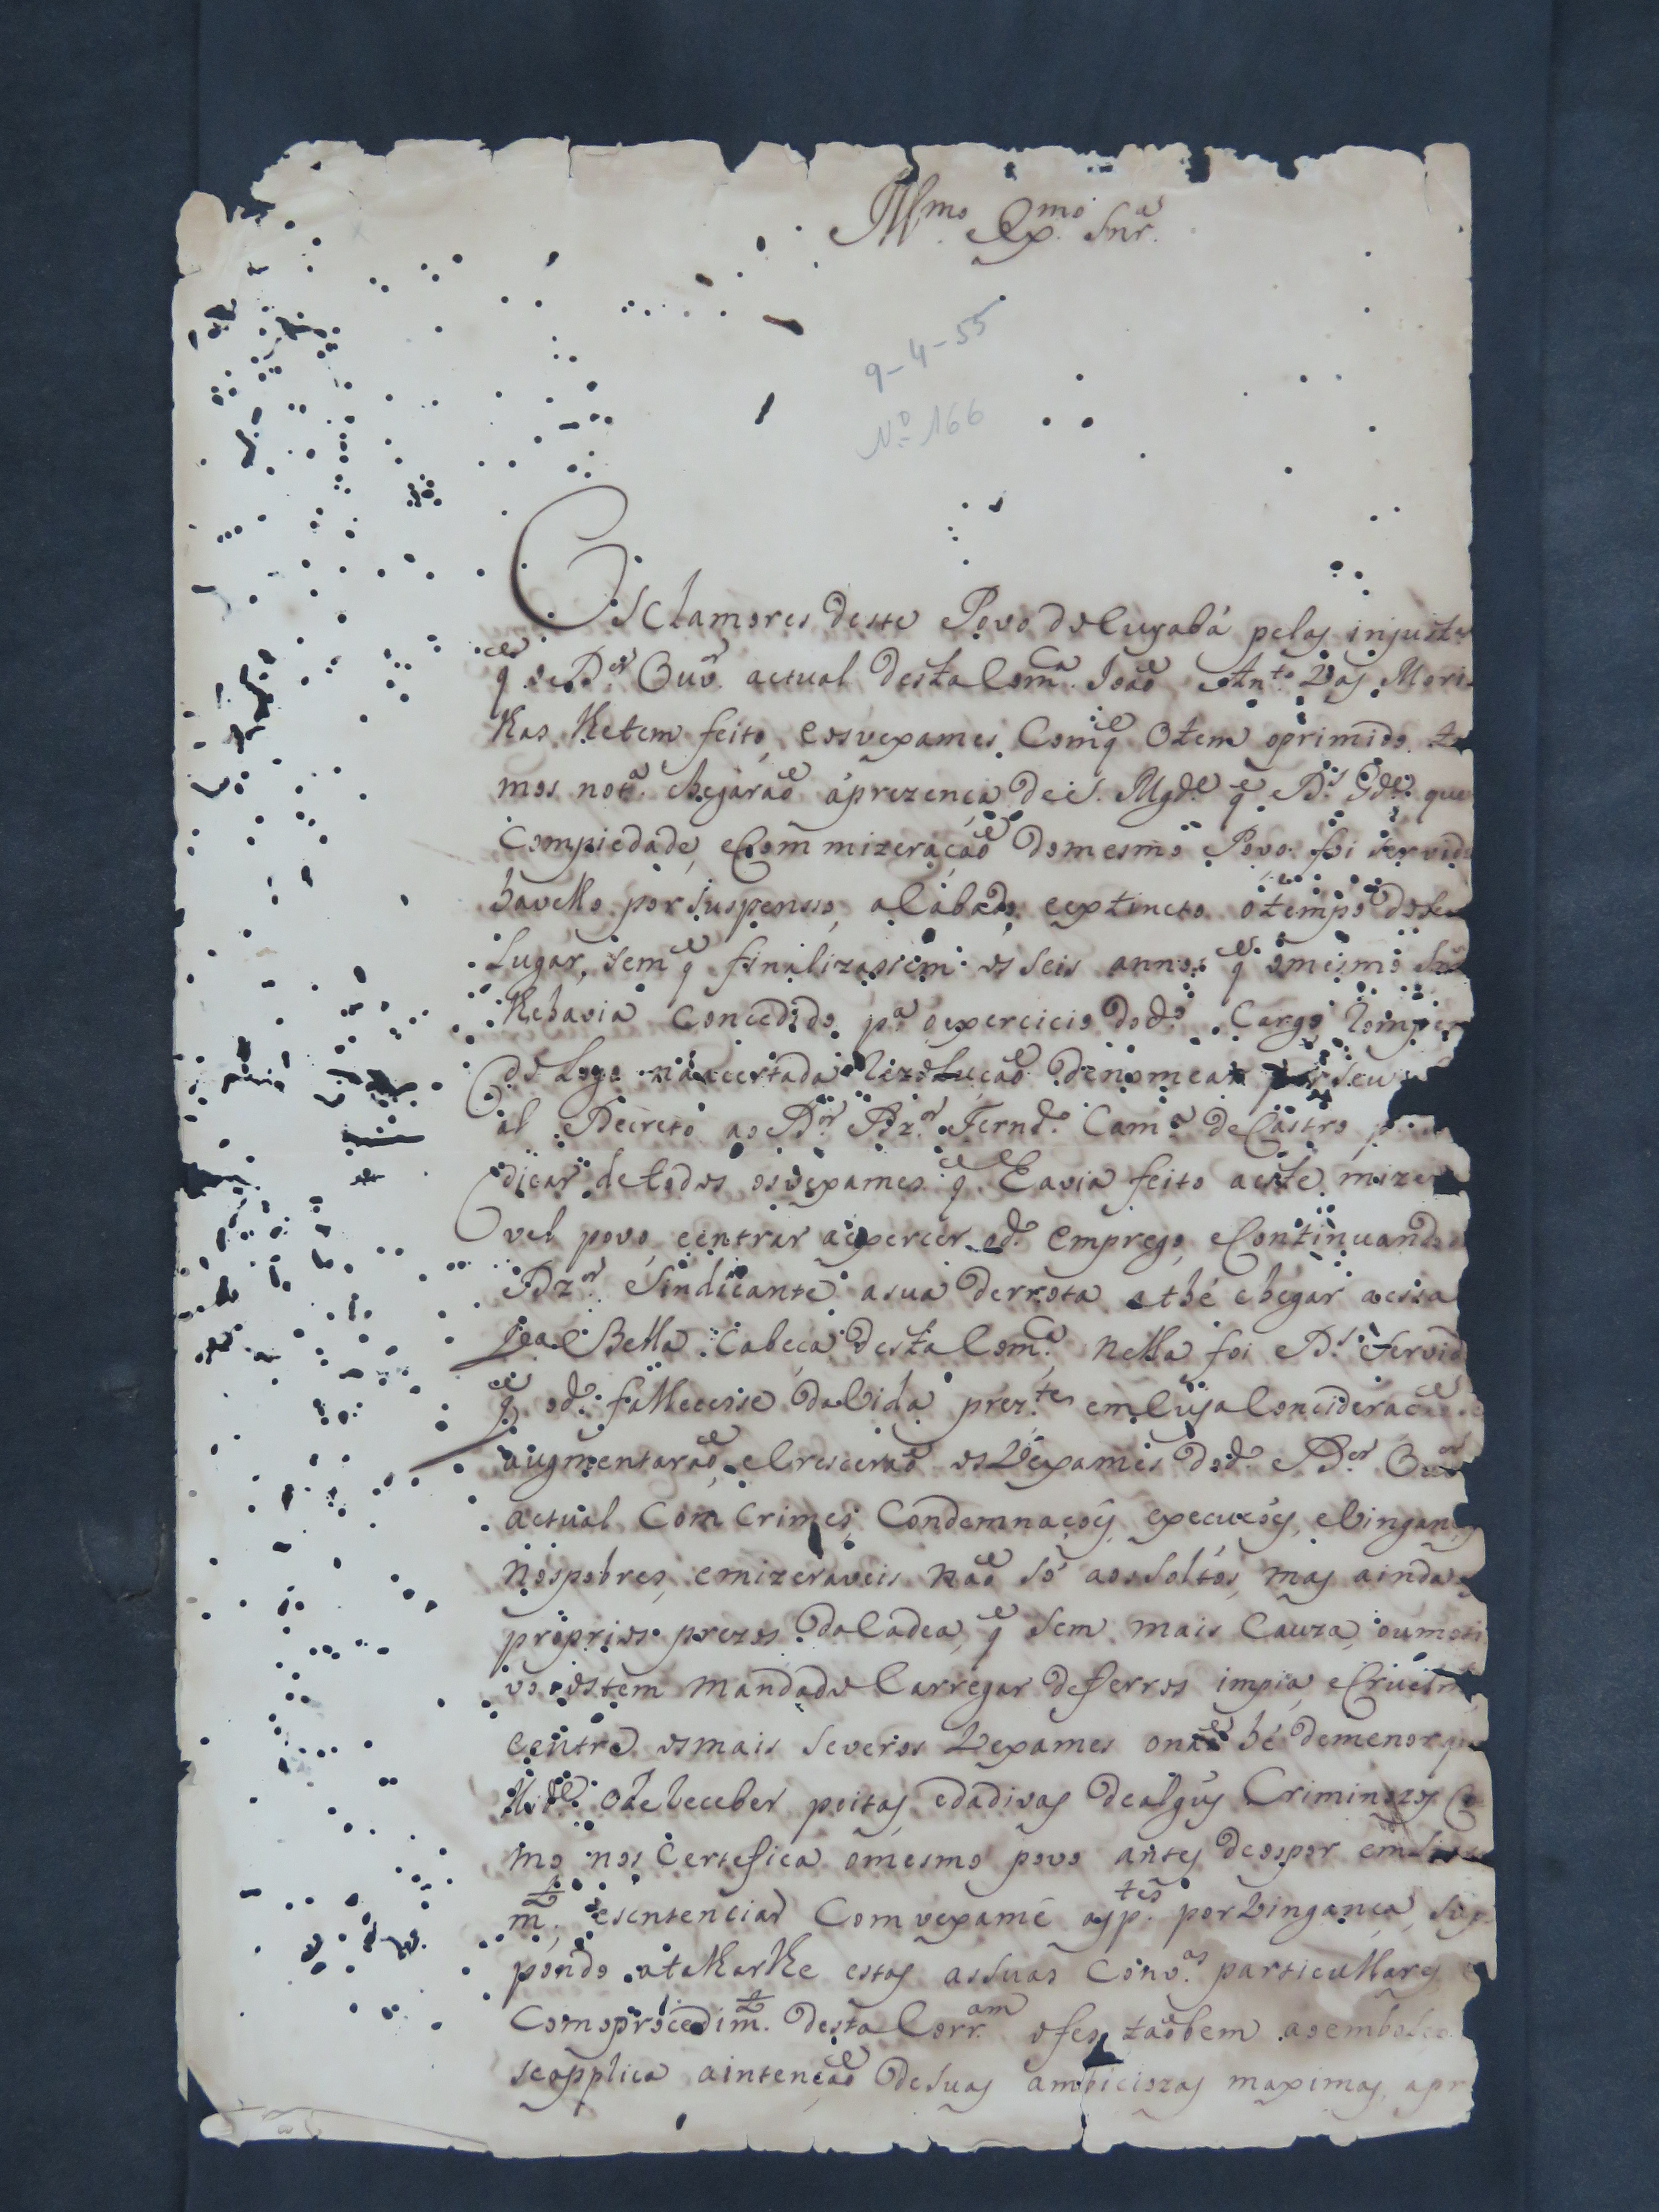 Illmo. Exmo. Snr.
9-4-55
No 166
Os Clamores deste Povo do Cuyabá pelas injusta
q̃ o Dor Ouvor actual desta Comca. João Anto. Vas Mori
lhas lhe tem feito, e os vexames Com q̃ O tem oprimido
mos nota. chegarão á prezença de S. Magde. q̃ Ds. Gde. que
Com piedade, e Commizeração do mesmo Povo foi servid
havello por suspensso, acabado, e extincto o tempo do seu
Lugar, sem q̃ finalizassem os seis annos q̃ o mesmo
lhe havia Concedido pa. o exercicio do do. Cargo,
do Logo na acertada Rezolução de nomear por seu
al Decreto ao Dor. Dzor. Fernd. Cama. de Castro
dicar de todos os vexames q̃ havia feito a este mizer
vel povo, e entrar a exercer o do. emprego, e Continuando
Dzor. Sindicante a sua derrota athé chegar a essa
Va. Bella Cabeça desta Comca. nella foi Ds. servid
q̃ o do. fallecesse da Vida prezte. em Cuja Concideração
augmentarão, e Crescerão os Vexames do do. Dor. Ouvor
actual Com Crimes, Condemnaçoẽs, execuçoẽs, e Vinganças
nos pobres, e mizeraveis não só aos soltos, mas ainda
proprios prezos da Cadea, q̃ sem mais Cauza, ou moti
vo os tem mandado Carregar de ferros impia, e Cruelm
e entre os mais severos Vexames o não hé de menor
o de Receber peitas, e dadivas de algũs Criminozos Co
mo nos Certefica o mesmo povo antes de os por em
mto., e sentenciar Com vexame as ptes. por Vingança, sup
pondo atalharlhe estas as suas Convas. particullares
Com o procedimto. desta Corram. o fes taõbem ao embolço
se applica a intenção de suas ambiciozas maximas, apr